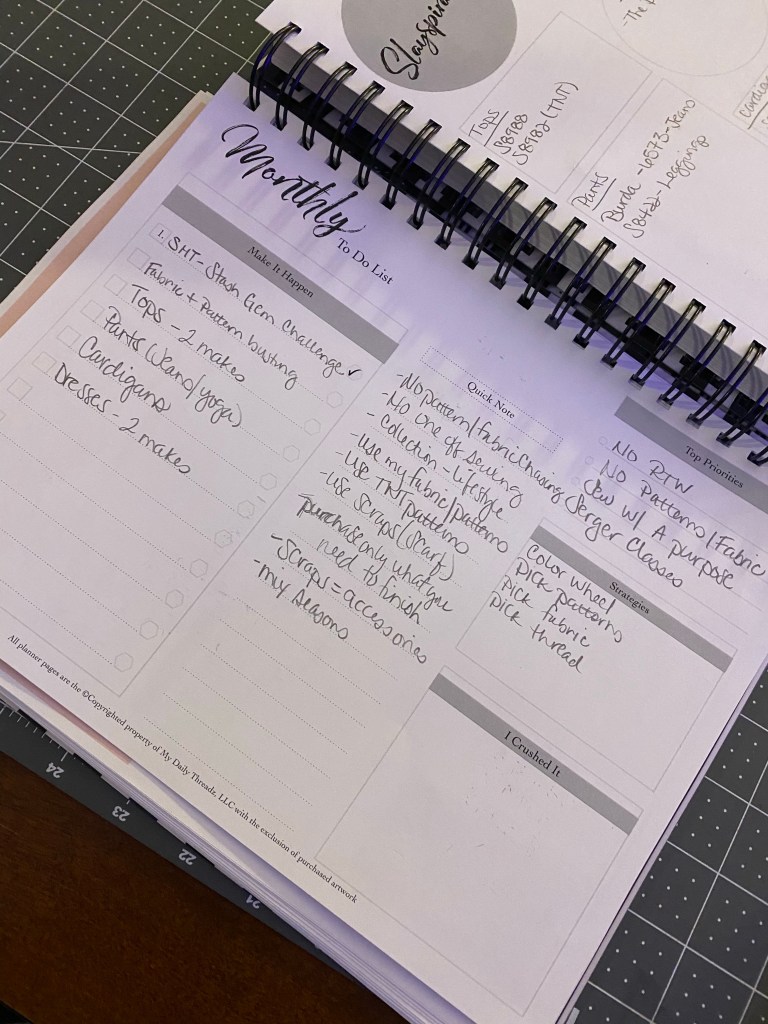 Slayspira
- The p
Tops
S8988
S8982 (TNT)
Pants
Burda - 6573 - Jeans
S8422 - Leggings
Cardiga
Monthly
To Do List
Make It Happen
1. SHT - Stash Gem Challenge ✓
Fabric + Pattern busting
Tops - 2 makes
Pants (Jeans/yoga)
Cardigans
Dresses - 2 makes
Quick Note
- No pattern/fabric chasing
- No one off sewing
- Collection - Lifestyle
- Use my fabric/patterns
- Use TNT patterns
- Use scraps (scarf)
purchase only what you
need to finish
- Scraps = accessories
- my seasons
Top Priorities
NO RTW
NO Patterns/Fabric
Sew w/ A purpose
Serger Classes
Strategies
Color wheel
Pick patterns
Pick fabric
Pick thread
I Crushed It
All planner pages are the ©Copyrighted property of My Daily Threadz, LLC with the exclusion of purchased artwork
24
23
22
21